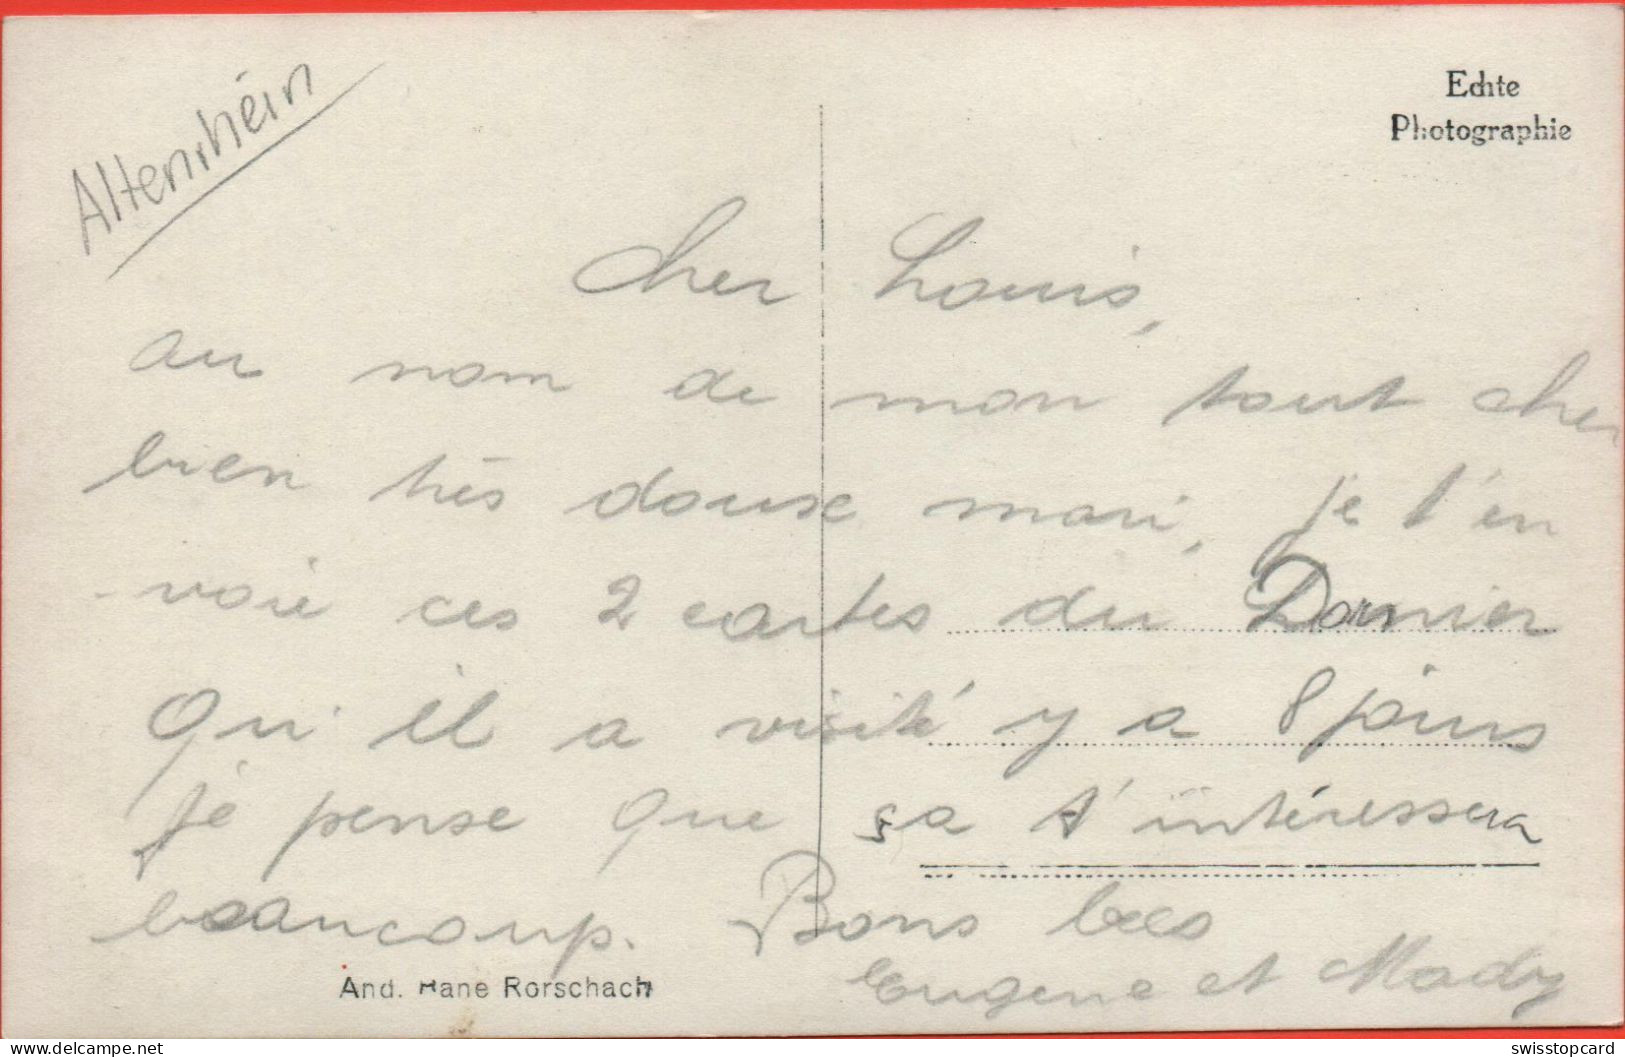 Altenrhein
Echte
Photographie
Cher Louis,
au nom de mon tout cher
bien très douse mari, je t'en
- voie ces 2 cartes du Dornier
Qu'il a visité y a 8 jours
je pense que ça t'intéressera
beaucoup. Bons becs
Eugene et Mady
And. Hane Rorschach
www.delcampe.net
swisstopcard